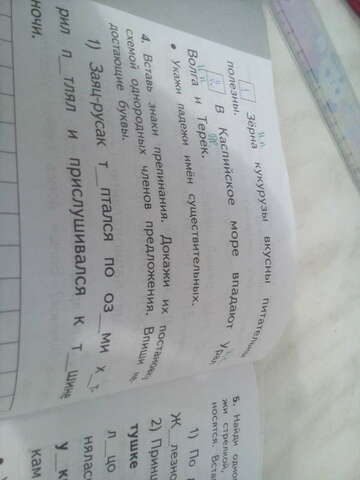 Зёрна кукурузы вкусны питательны
полезны. В Каспийское море впадают Урал
Волга и Терек.
• Укажи падежи имён существительных.
4. Вставь знаки препинания. Докажи их постановку
схемой однородных членов предложения. Впиши не-
достающие буквы.
1) Заяц-русак т_птался по оз_ми х_
рил п_тлял и прислушивался к т_шине
ночи.
5. Найди
жи стрелкой,
носятся.
1) По
Ж_лезно
2)
тушке
л_цо
нялас
у_к
кам